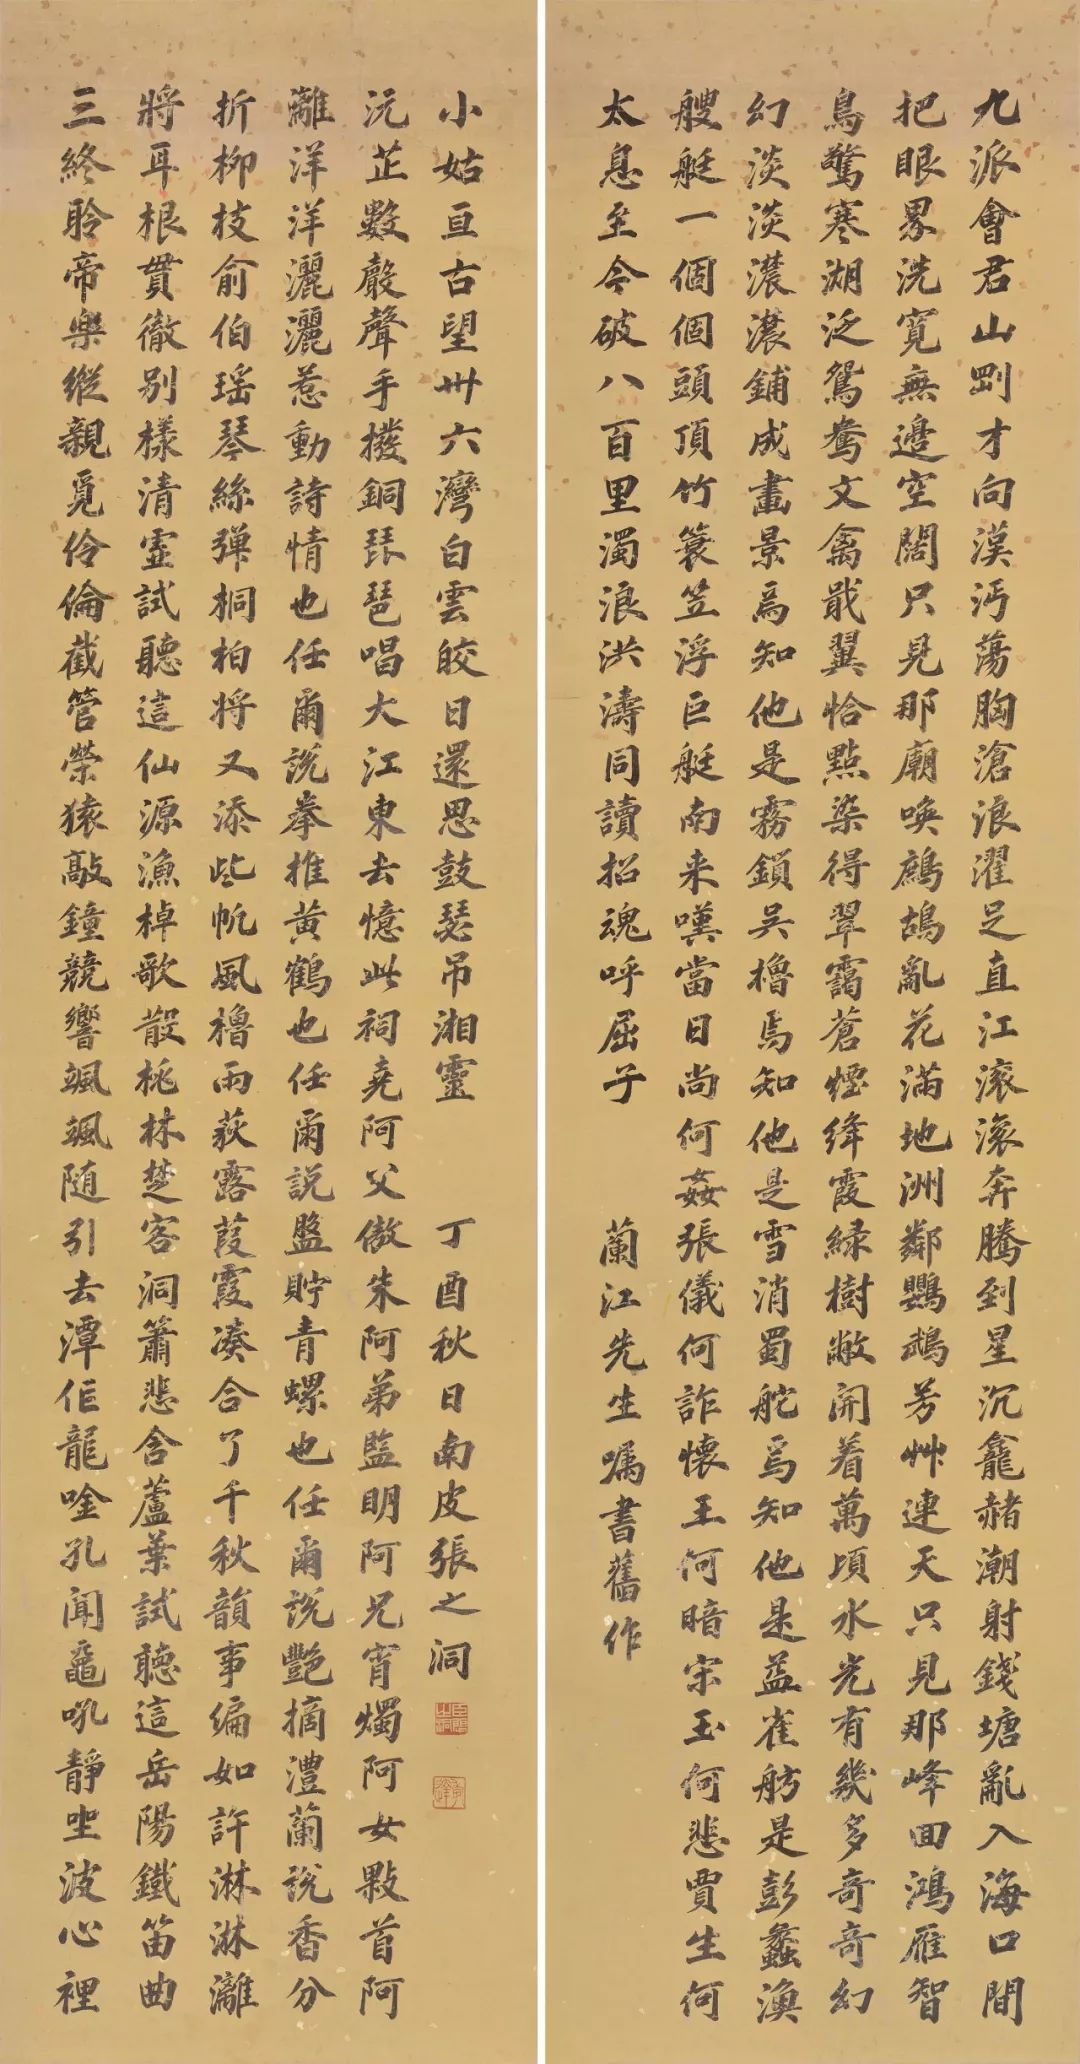 九派會君山剛才向漢沔蕩胸滄浪濯足直江滚滚奔騰到星沉龕赭潮射錢塘亂入海口間
把眼界洗寬無邊空闊只見那廟喚鷓鴣亂花滿地洲鄰鸚鵡芳艸連天只見那峰回鴻雁智
鳥驚寒湖泛鴛鴦文禽戢翼恰點染得翠靄蒼煙絳霞緑樹敞開着萬頃水光有幾多奇奇幻
幻淡淡濃濃鋪成畫景焉知他是霧鎖吴櫓焉知他是雪消蜀舵焉知他是益雀舫是彭蠡漁
艘艇一個個頭頂竹簑笠浮巨艇南来嘆當日尚何姦張儀何詐懐王何暗宋玉何悲賈生何
太息至今破八百里濁浪洪濤同讀招魂呼屈子
蘭江先生嘱書舊作
三終聆帝樂縱親覓伶倫截管榮猿敲鐘競響颯颯随引去潭作龍唫孔聞鼉吼靜坐波心裡
將耳根貫徹别樣清靈試聽這仙源漁棹歌散桃林楚客洞簫悲含蘆葉試聽這岳陽鐵笛曲
折柳枝俞伯瑶琴絲弹桐柏將又添些帆風櫓雨荻露葭霞凑合了千秋韻事偏如許淋淋灕
灕洋洋灑灑惹動詩情也任爾説拳推黄鶴也任爾説盬貯青螺也任爾説艷摘澧蘭説香分
沅芷數聲聲手撥銅琵琶唱大江東去憶此祠堯阿父傲朱阿弟監明阿兄宵燭阿女敤首阿
小姑亘古望卅六灣白雲皎日還思鼓瑟吊湘靈
丁酉秋日南皮張之洞